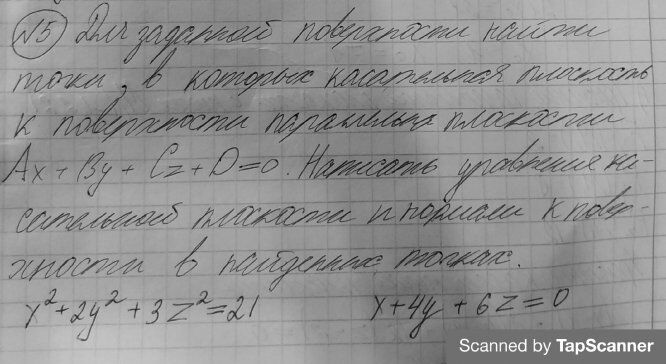 №5 Для заданной поверхности найти
точки, в которых касательная плоскость
к поверхности параллельна плоскости
Ax + By + Cz + D = 0. Написать уравнения ка-
сательной плоскости и нормали к повер-
хности в найденных точках.
x² + 2y² + 3z² = 21 x + 4y + 6z = 0
Scanned by TapScanner